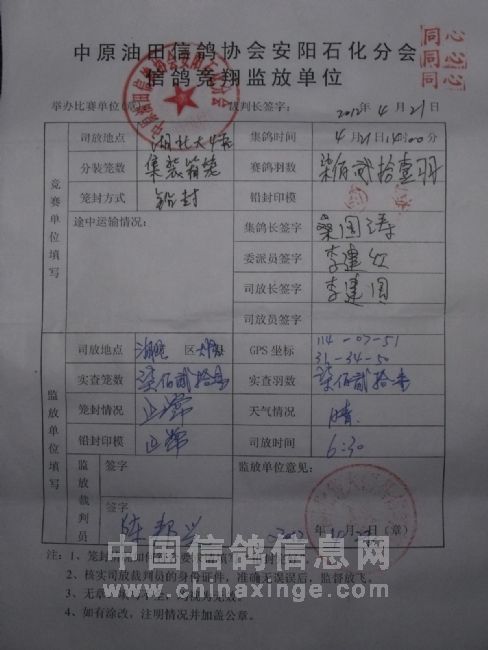 中原油田信鸽协会安阳石化分会
信鸽竞翔监放单位
举办比赛单位(章) 裁判长签字： 2012年4月21日
竞赛单位填写
司放地点 湖北大悟 集鸽时间 4月21日14时00分
分装笼数 集装箱笼 赛鸽羽数 柒佰贰拾壹羽
笼封方式 铅封 铅封印模
途中运输情况： 集鸽长签字
委派员签字
司放长签字 李建国
司放员签字
监放单位填写
司放地点 区 GPS坐标 114-07-51
31-34-50
实查笼数 柒佰贰拾壹 实查羽数 柒佰贰拾壹
笼封情况 正常 天气情况 晴
铅封印模 正常 司放时间 6:30
监放裁判员 签字 监放单位意见：
签字 年 月 日(章)
注：1、笼封
2、核实司放裁判员的身份证件，准确无误误后，监督放飞。
3、无
4、如有涂改，注明情况并加盖公章。
中国信鸽信息网
www.chinaxinge.com